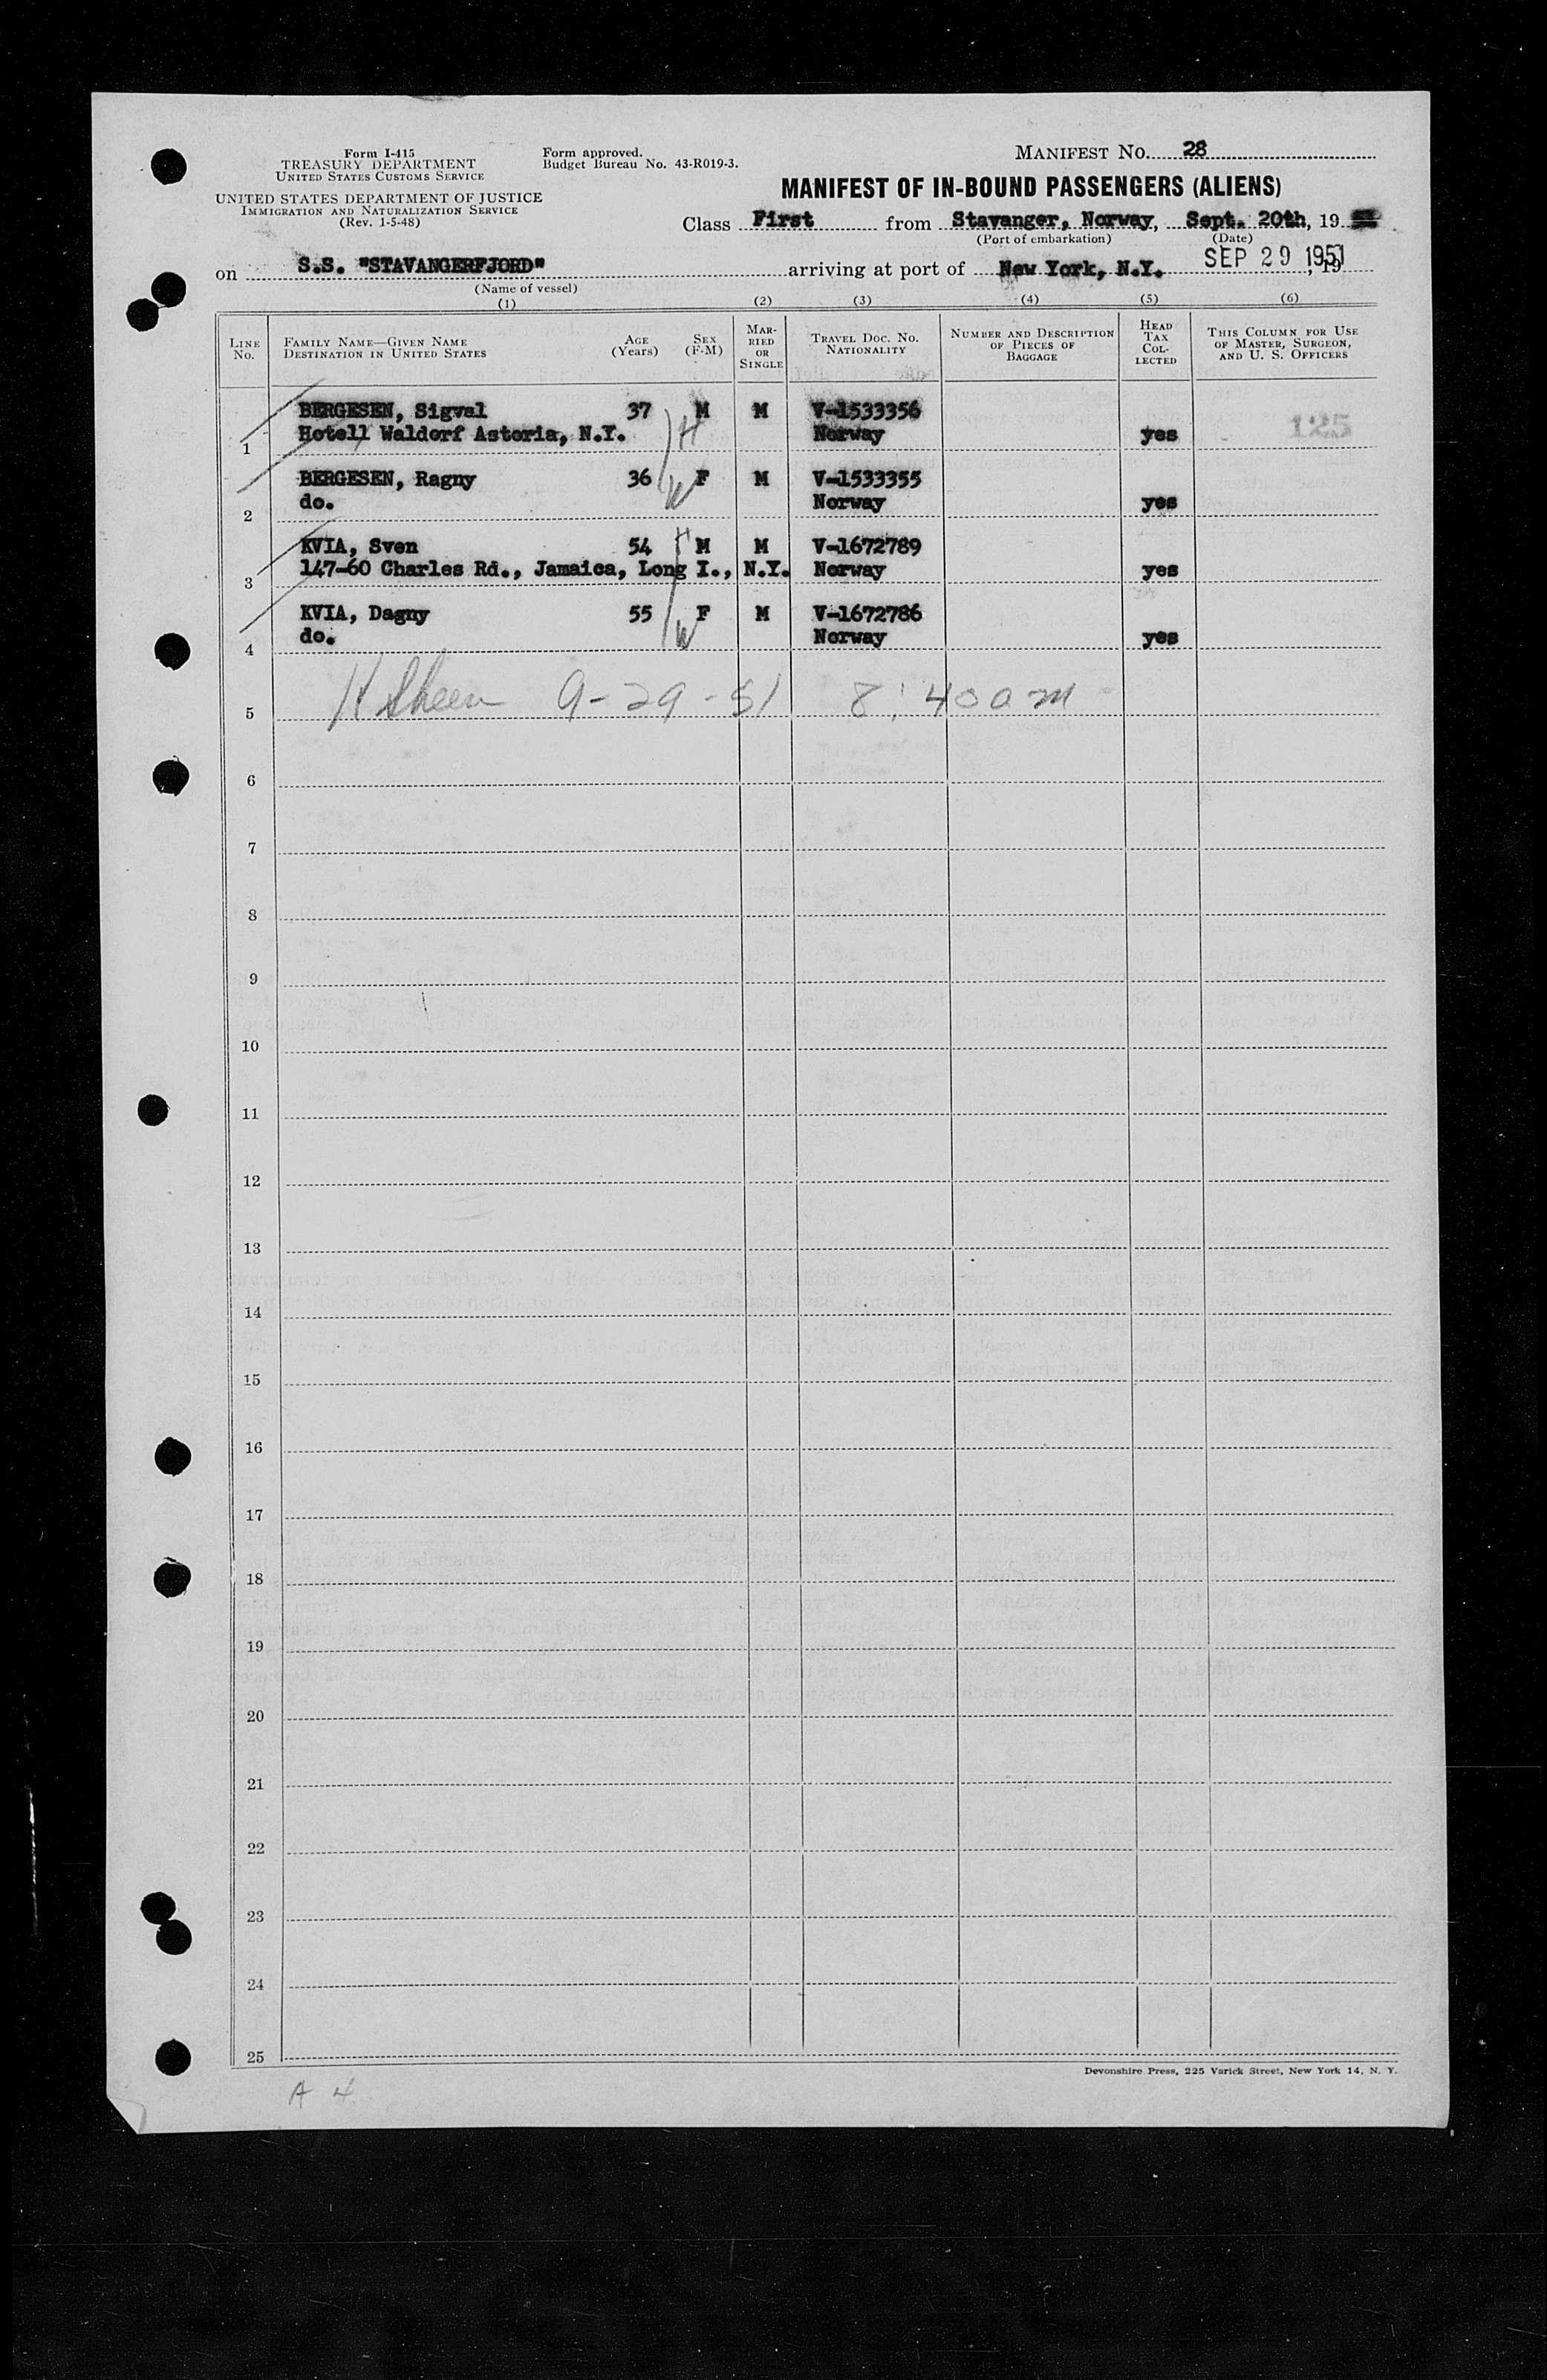 Form I-415
TREASURY DEPARTMENT
UNITED STATES CUSTOMS SERVICE
UNITED STATES DEPARTMENT OF JUSTICE
IMMIGRATION AND NATURALIZATION SERVICE
(Rev. 1-5-48)
Form approved.
Budget Bureau No. 43-R019-3.
MANIFEST NO. 28
MANIFEST OF IN-BOUND PASSENGERS (ALIENS)
Class First from Stavanger, Norway, Sept. 20th, 19
(Port of embarkation) (Date)
on S.S. "STAVANGERFJORD" arriving at port of New York, N.Y. SEP 29 1951, 19
(Name of vessel)
(1) (2) (3) (4) (5) (6)
LINE NO. FAMILY NAME—GIVEN NAME DESTINATION IN UNITED STATES AGE (Years) SEX (F-M) MARRIED OR SINGLE TRAVEL DOC. NO. NATIONALITY NUMBER AND DESCRIPTION OF PIECES OF BAGGAGE HEAD TAX COLLECTED THIS COLUMN FOR USE OF MASTER, SURGEON, AND U. S. OFFICERS
BERGESEN, Sigval 37 H M M V-1533356 125
1 Hotell Waldorf Astoria, N.Y. Norway yes
BERGESEN, Ragny 36 W F M V-1533355
2 do. Norway yes
KVIA, Sven 54 H M M V-1672789
3 147-60 Charles Rd., Jamaica, Long I., N.Y. Norway yes
KVIA, Dagny 55 W F M V-1672786
4 do. Norway yes
5 9-29-51 8:40 am
6
7
8
9
10
11
12
13
14
15
16
17
18
19
20
21
22
23
24
25
Devonshire Press, 225 Varick Street, New York 14, N. Y.
A 4